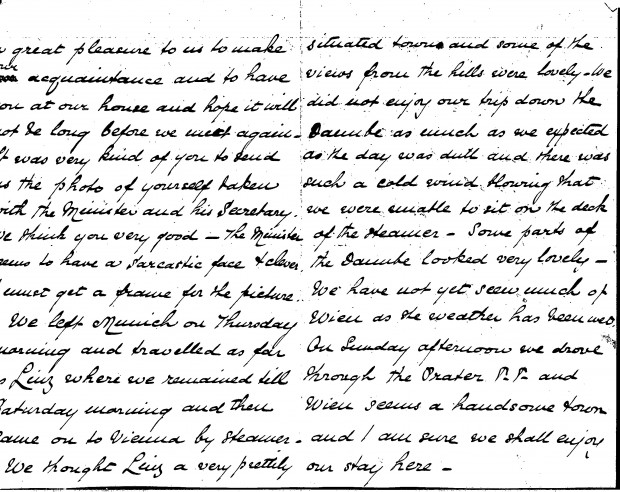 great pleasure to us to make
acquaintance and to have
you at our house and hope it will
not be long before we meet again -
It was very kind of you to send
us the photo of yourself taken
with the Minister and his Secretary.
We think you very good - The Minister
seems to have a sarcastic face & clever
I must get a frame for the picture.
We left Munich on Thursday
morning and travelled as far
as Linz where we remained till
Saturday morning and then
came on to Vienna by steamer -
We thought Linz a very prettily
situated town and some of the
views from the hills were lovely - We
did not enjoy our trip down the
Danube as much as we expected
as the day was dull and there was
such a cold wind blowing that
we were unable to sit on the deck
of the steamer - Some parts of
the Danube looked very lovely -
We have not yet seen much of
Wien as the weather has been wet.
On Sunday afternoon we drove
through the Prater P.P. and
Wien seems a handsome town
and I am sure we shall enjoy
our stay here -